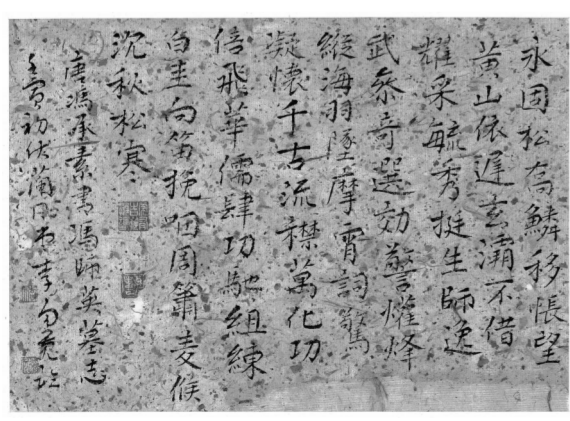 永固松高鱗移帳望
黃山依遲玄灞不借
耀采毓秀挺生師逸
武叅奇選効警爟烽
縱海羽墜摩霄詞驚
凝懷千古流襟萬化功
倍飛華儒肆功馳組練
白圭向笛挽咽周簫麦候
沉秋松寒
唐馮承素書馮師英墓志
壬寅初伏蘭李向